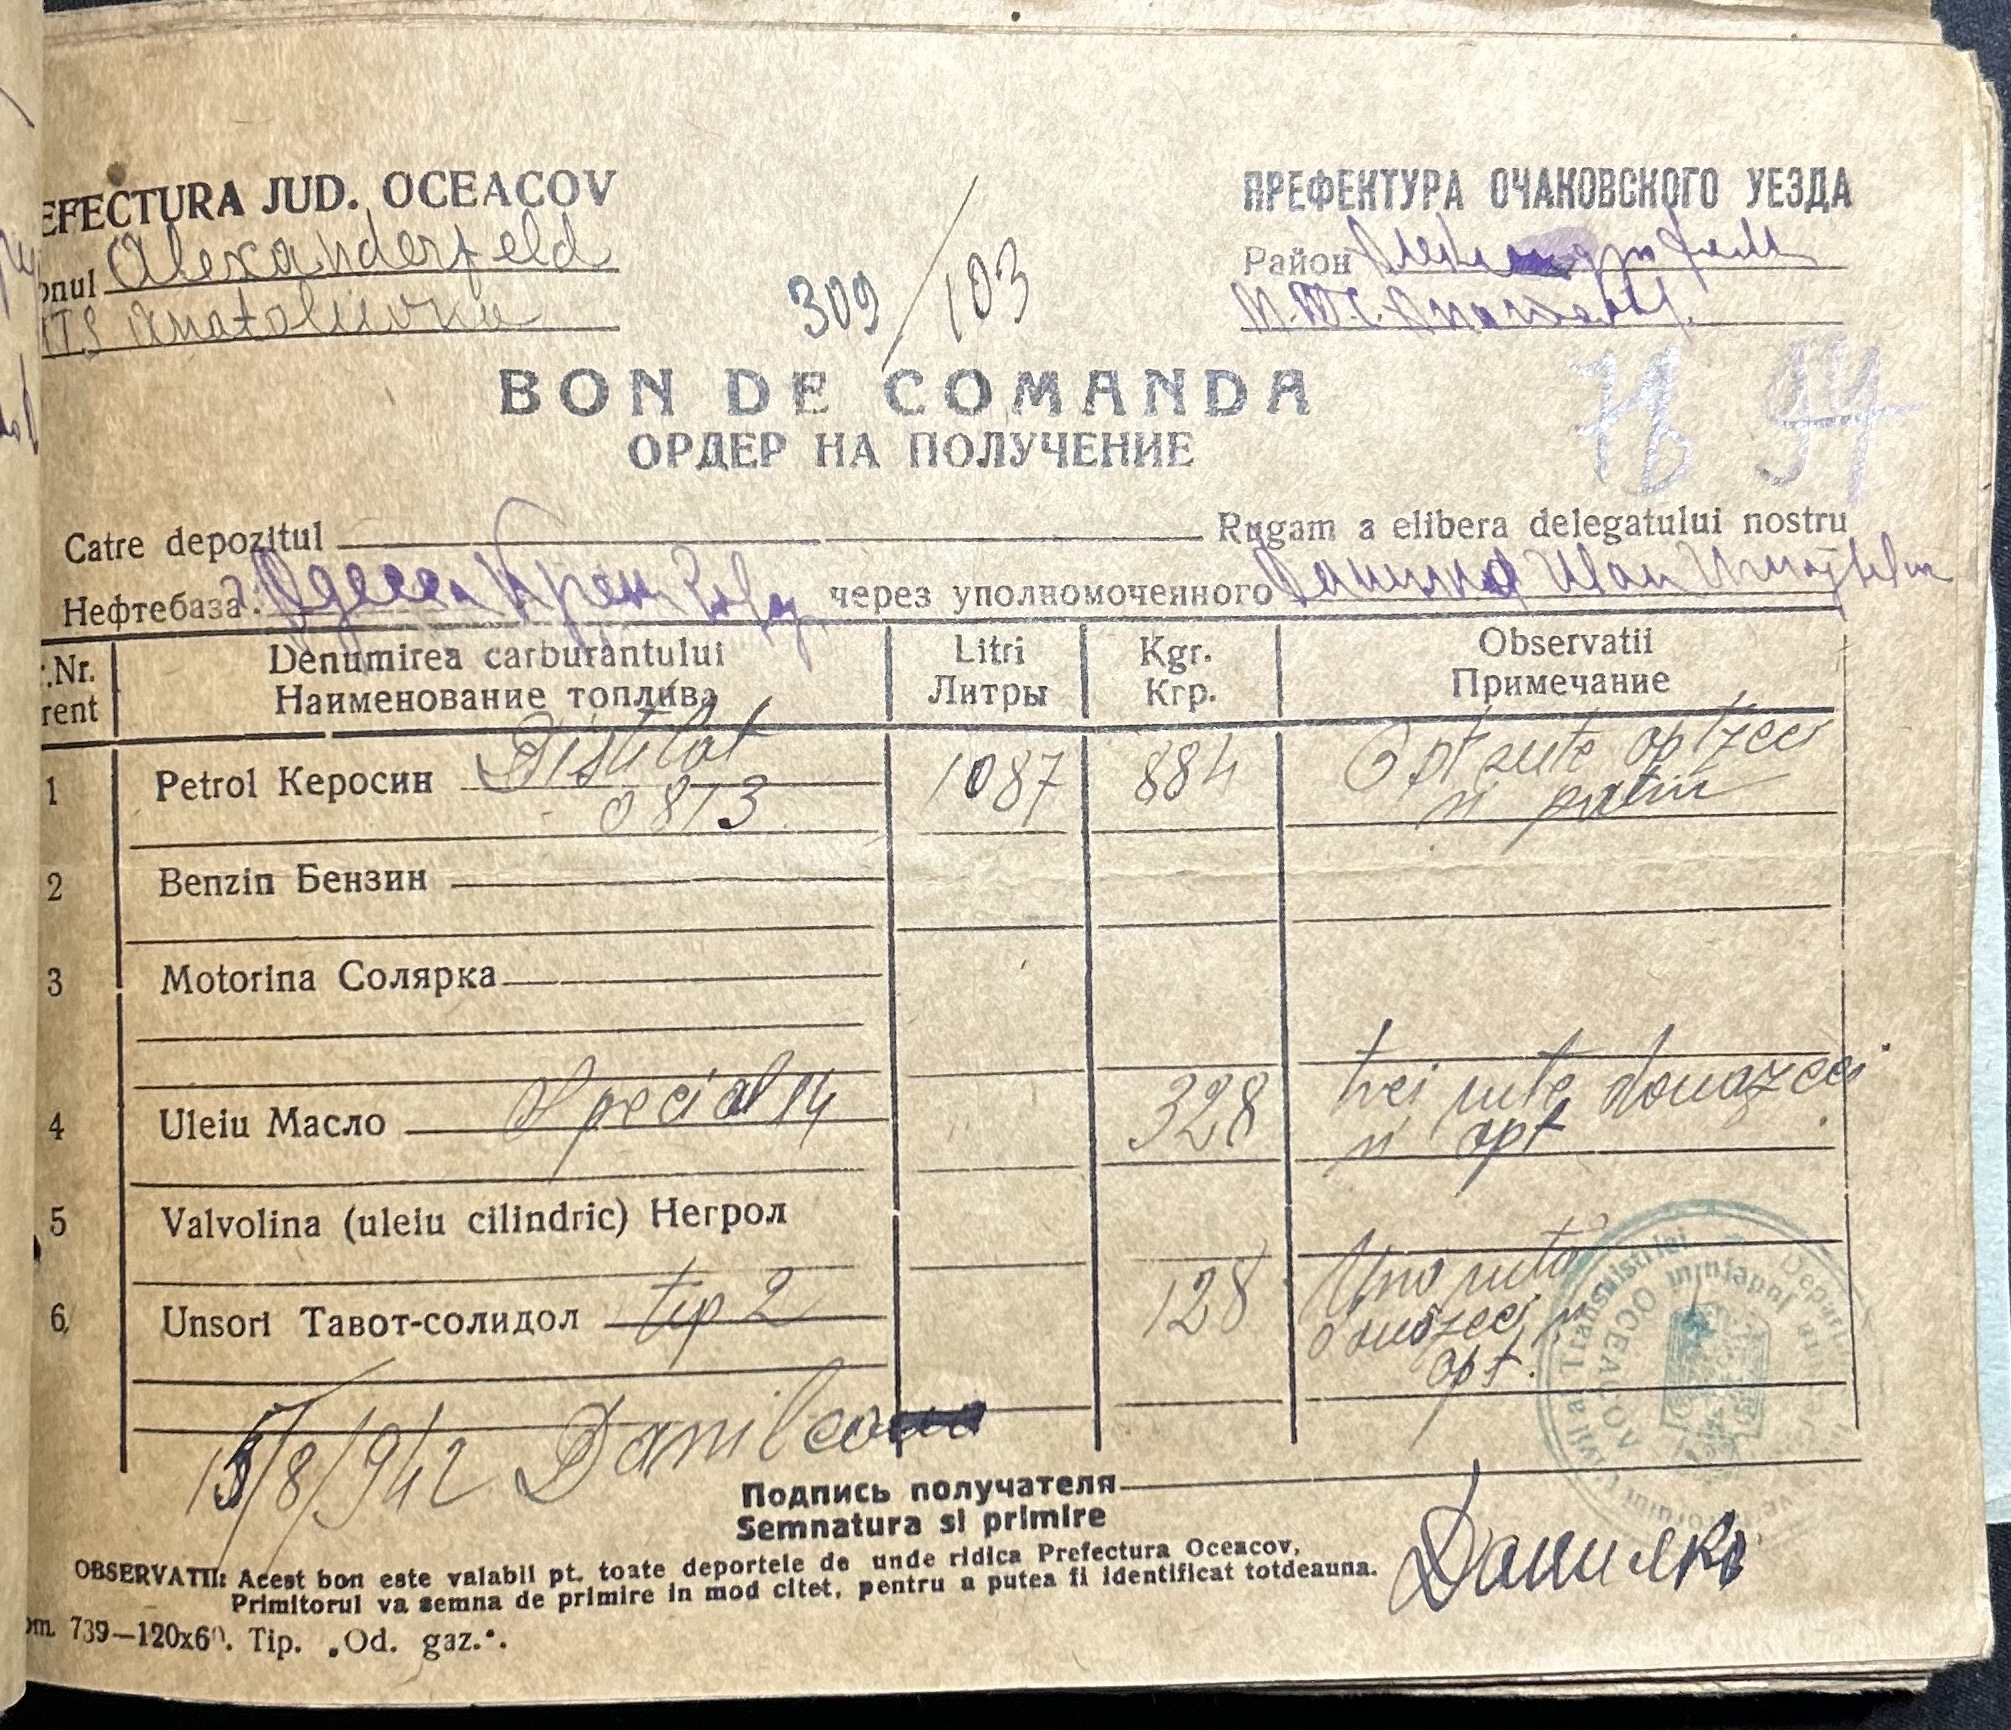 EFECTURA JUD. OCEACOV
onul Alexanderfeld
MTS Anatoliivka
309/103
ПРЕФЕКТУРА ОЧАКОВСКОГО УЕЗДА
Район
М.Т.С.
BON DE COMANDA
ОРДЕР НА ПОЛУЧЕНИЕ
78 94
Catre depozitul Rugam a elibera delegatului nostru
Нефтебаза: г. Одесса через уполномоченного Данилко Иван
.Nr. Denumirea carburantului Litri Kgr. Observatii
rent Наименование топлива Литры Кгр. Примечание
1 Petrol Керосин Distilat 1087 884 Opt sute optzeci
0813 si patru
2 Benzin Бензин
3 Motorina Солярка
4 Uleiu Масло Special 14 328 trei sute douazeci
si opt
5 Valvolina (uleiu cilindric) Негрол
6 Unsori Тавот-солидол tip 2 128 Una suta
douazeci si
opt.
15/8/942 Danilco
Подпись получателя
Semnatura si primire
Данилко
OBSERVATII: Acest bon este valabil pt. toate deportele de unde ridica Prefectura Oceacov,
Primitorul va semna de primire in mod citet, pentru a putea fi identificat totdeauna.
om. 739—120x60. Tip. „Od. gaz.".
Civil al Transnistriei
OCEACOV